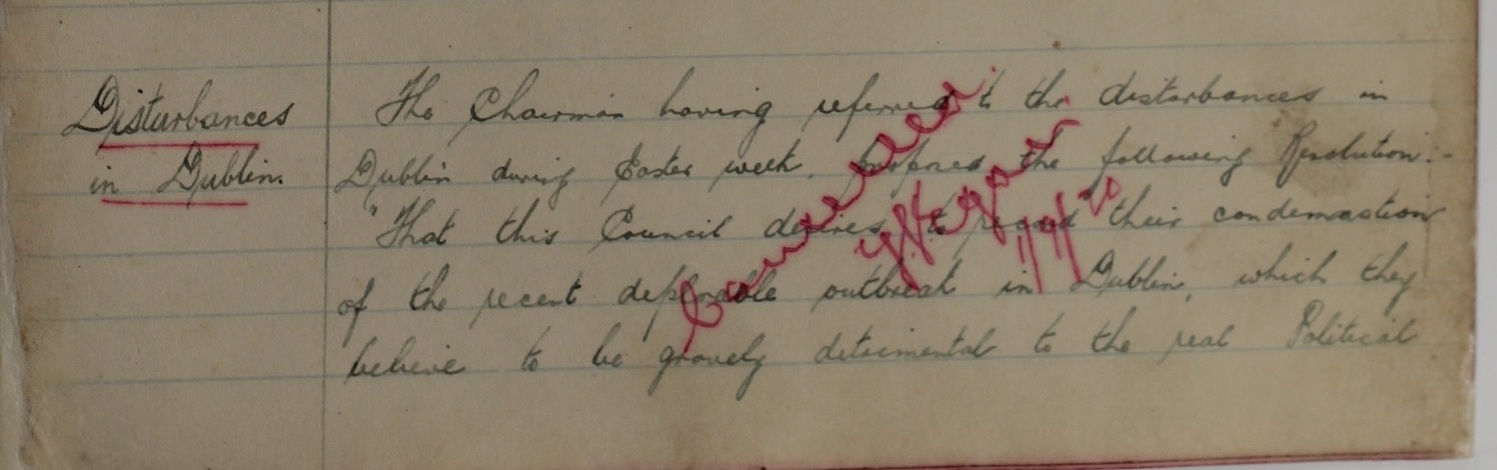 Disturbances
in Dublin.
The Chairman having referred to the disturbances in
Dublin during Easter week, proposed the following Resolution:-
"That this Council desires to record their condemnation
of the recent deplorable outbreak in Dublin, which they
believe to be gravely detrimental to the real Political
Cancelled
11/6/20